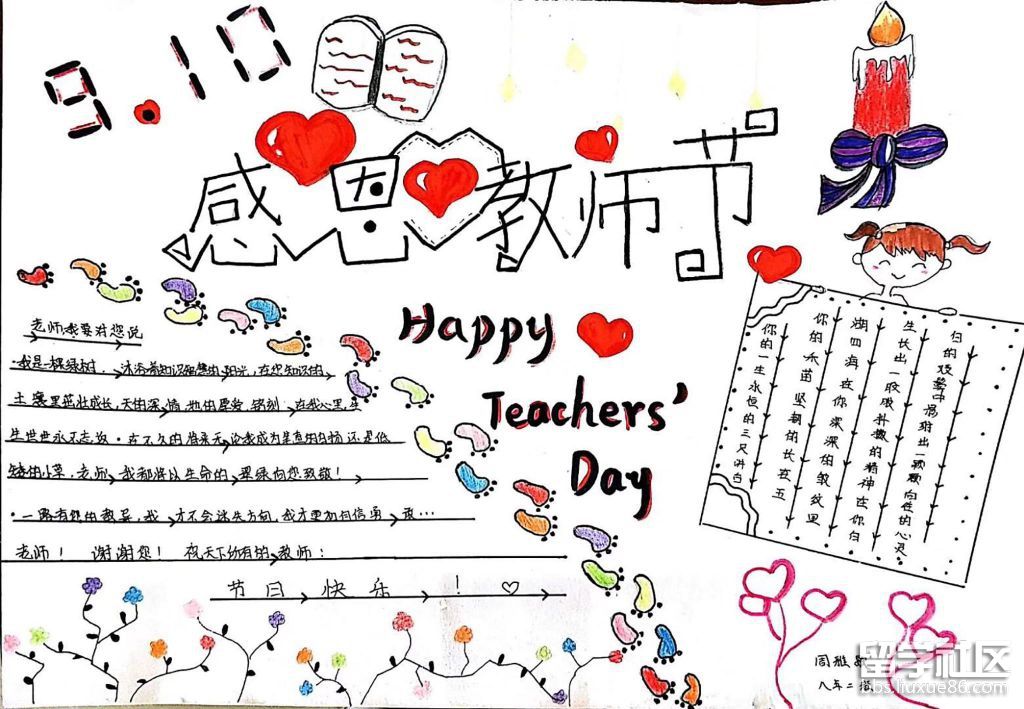 9.10
感恩教师节
Happy
Teachers'
Day
老师,我要对您说
·我是一棵绿树,沐浴着知识智慧的阳光,在您知识的
土壤里茁壮成长,天的深情地的厚爱铭刻在我心里,生
生世世永不忘。在不久的将来,无论我成为
的小草,老师,我都将以生命的翠绿向您致敬!
·一路有您的教导,我才不会迷失方向,我才更加有信勇敢…
老师! 谢谢您! 祝天下所有的教师:
节日快乐!
归的枝繁中 一颗颗向往的心灵
生长出一股股 的精神在你
湖四海在你深深的皱纹里
你的禾苗 坚韧的长在五
你的一生永恒的三尺讲台
周雅
八年二班
留学社区
bs.liuxue86.com